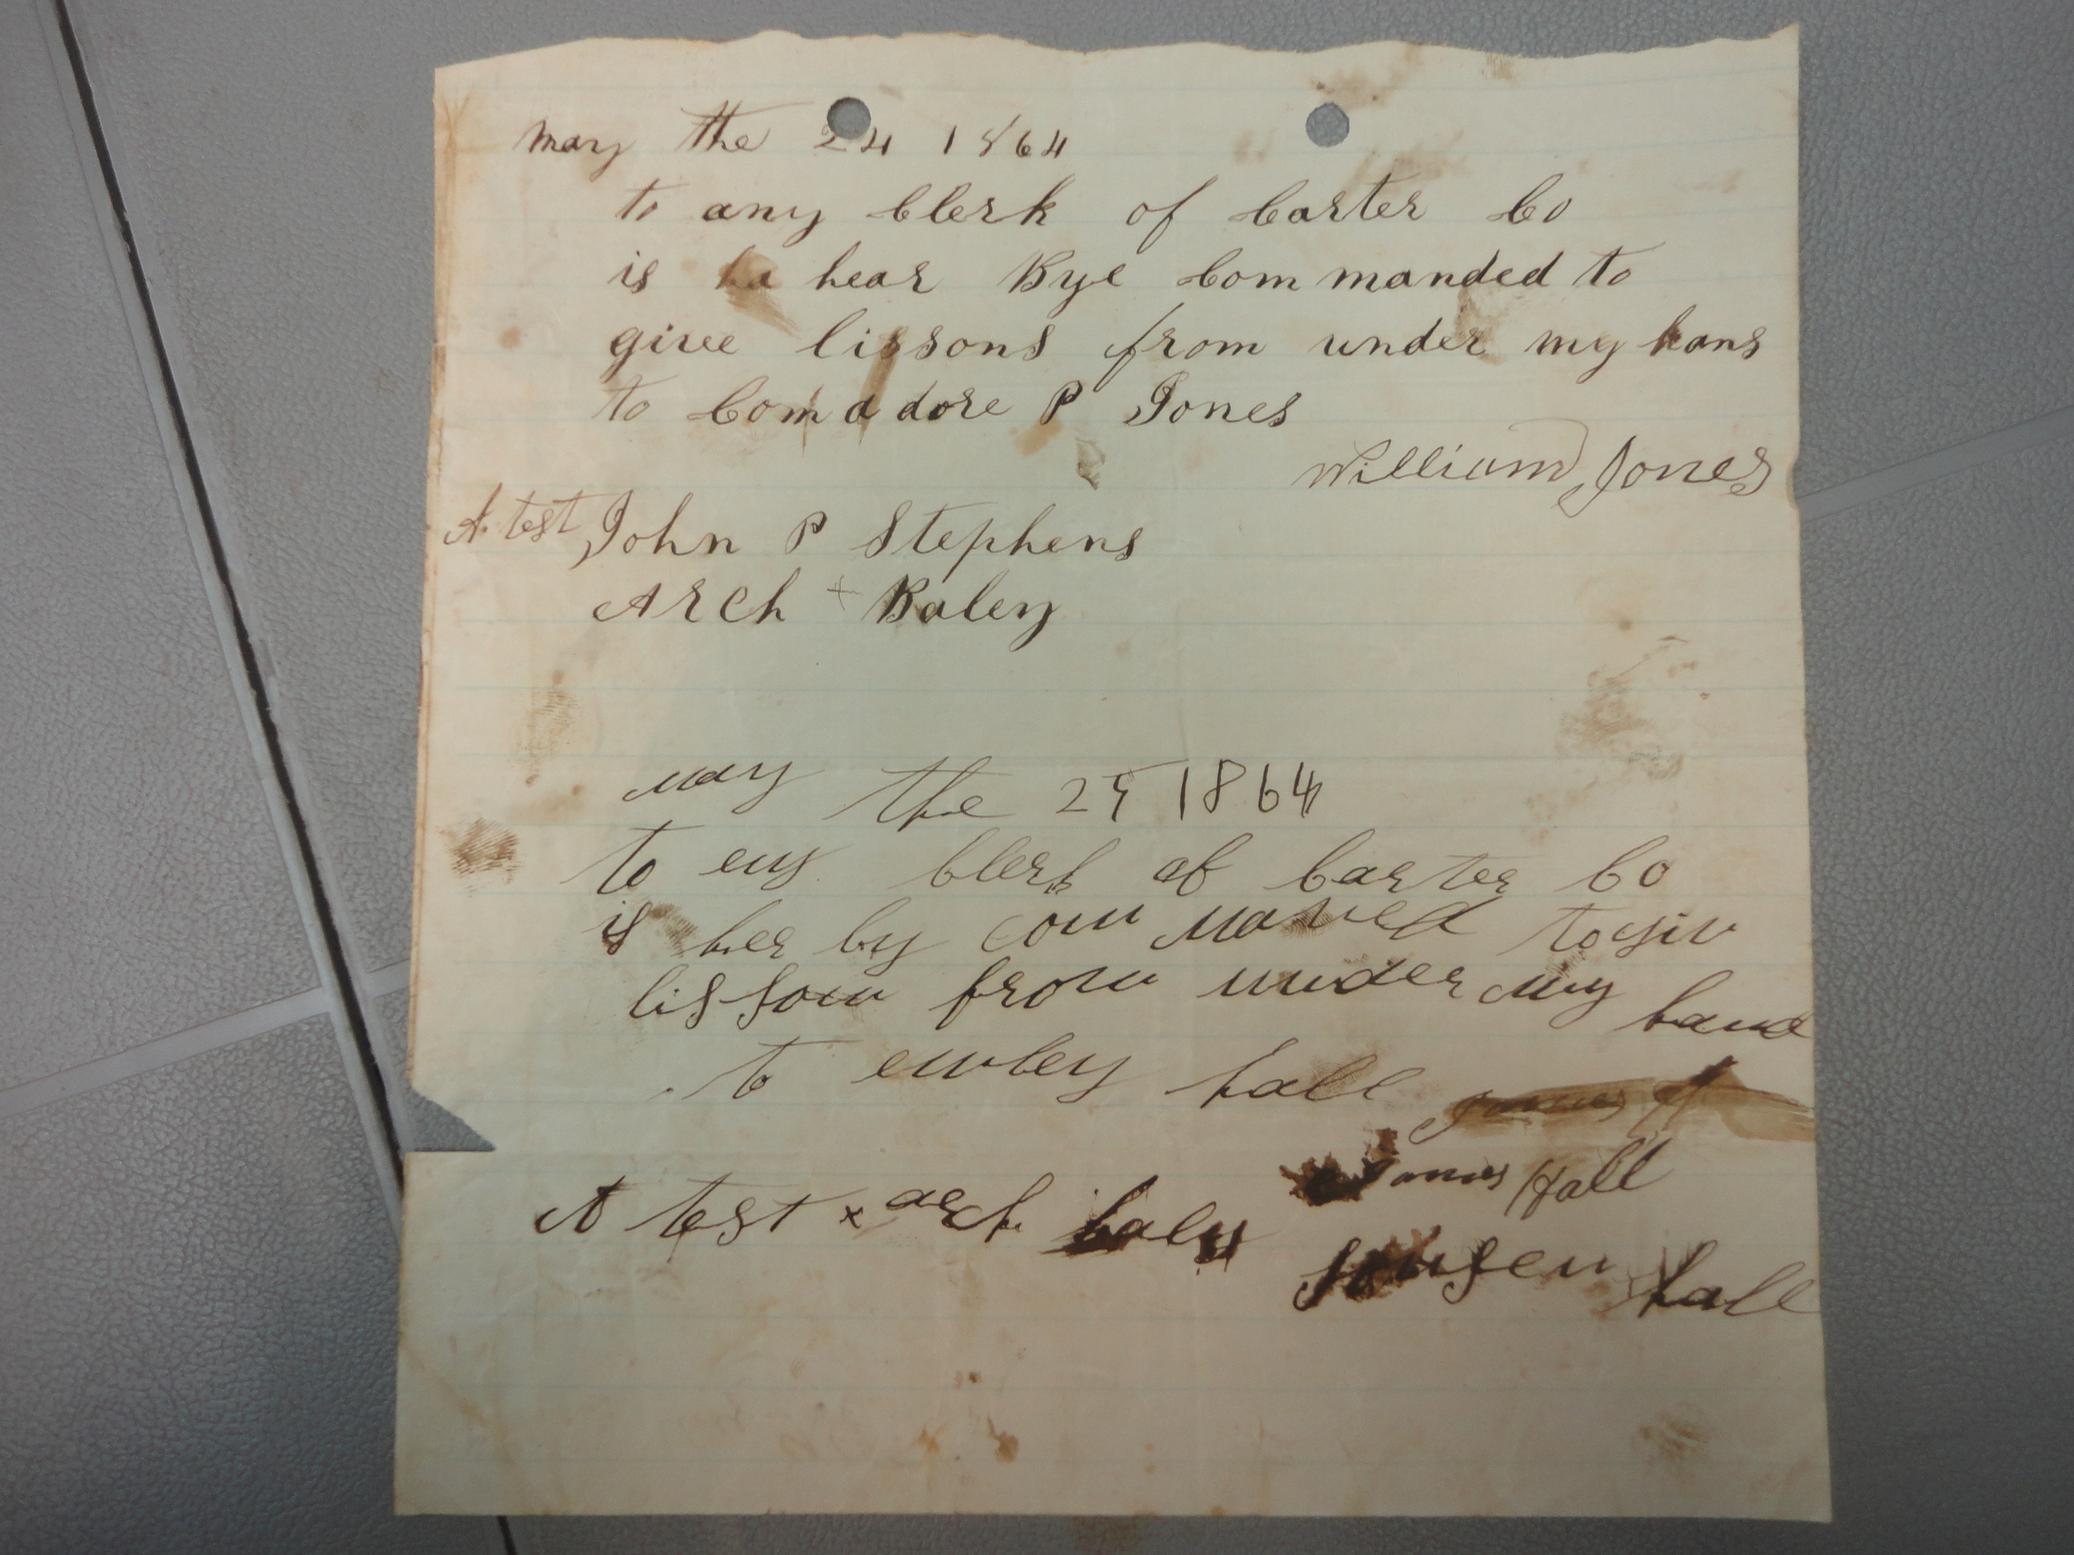 may the 24 1864
to any Clerk of Carter Co
is ha hear Bye Com manded to
give lissons from under my hans
to Comadore P Jones
William Jones
A test John P Stephens
Arch + Baley
may the 25 1864
to eny Clerk of Carter Co
is her by com maned to giv
lisson from under my hand
to hall
James H
James Hall
A test x arch baly
hall